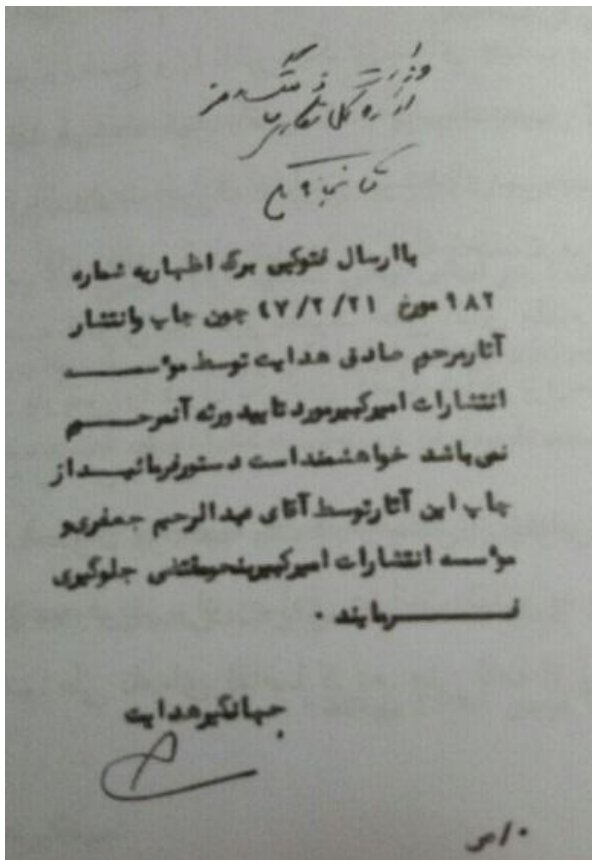 وزارت فرهنگ و هنر
اداره کل نگارش
با ارسال فتوکپی برگ اظهاریه شماره
۹۸۲ مورخ ۴۷/۲/۲۱ چون چاپ و انتشار
آثار مرحوم صادق هدایت توسط مؤسسه
انتشارات امیرکبیر مورد تایید ورثه آنمرحوم
نمی باشد خواهشمند است دستور فرمائید از
چاپ این آثار توسط آقای عبدالرحیم جعفری و
مؤسسه انتشارات امیرکبیر بنحو مقتضی جلوگیری
فرمایند .
جهانگیر هدایت
۰/ص